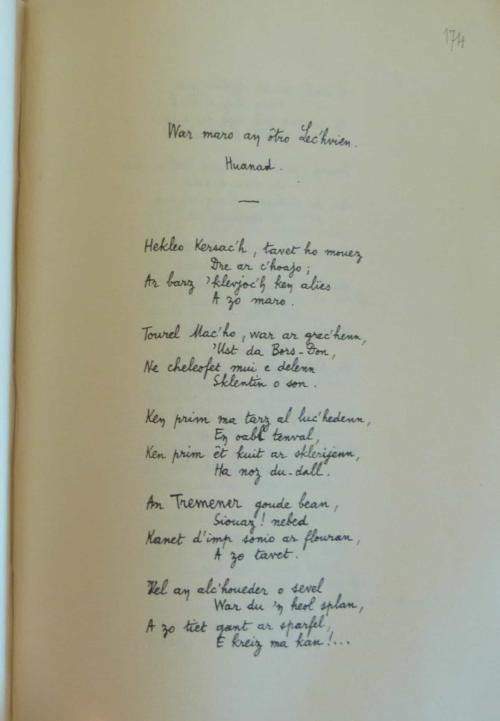 174
War maro an ôtro Lec'hvien.
Huanad.
Hekleo Kersac'h, tavet ho mouez
Dre ar c'hoajo;
Ar barz 'klevjoc'h ken alies
A zo maro.
Tourel Mac'ho, war ar grec'henn,
'Ust da Bors-Don,
Ne cheleofet mui e delenn
Sklentin o son.
Ken prim ma tarz al luc'hedenn,
En oabl tenval,
Ken prim êt kuit ar sklerijenn,
Ha noz du-dall.
An Tremener goude bean,
Siouaz! nebed
Kanet d'imp sonio ar flouran,
A zo tavet.
Vel an alc'houeder o sevel
War du 'n heol splan,
A zo tiet gant ar sparfel,
E kreiz ma kan!...